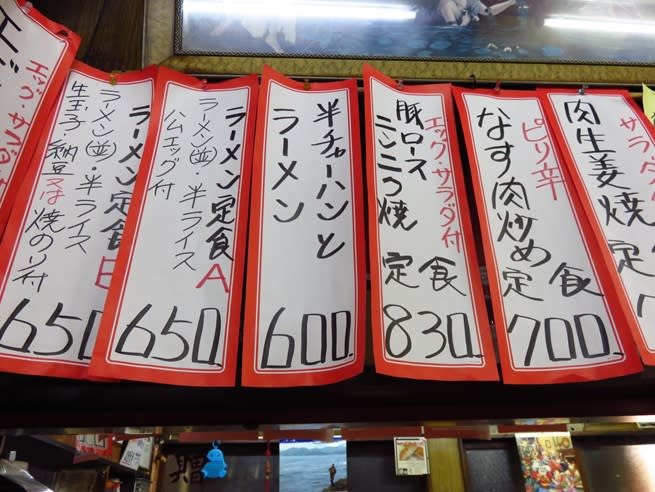 肉生姜焼定
サラダ
ピリ辛
なす肉炒め
定食
700
エッグ・サラダ付
豚ロース
ニンニク焼
定食
830
半チャーハンと
ラーメン
600
ラーメン定食A
ラーメン(並)・半ライス
ハムエッグ付
650
ラーメン定食B
ラーメン(並)・半ライス
生玉子・納豆又は焼のり付
650
エッグ・サラダ